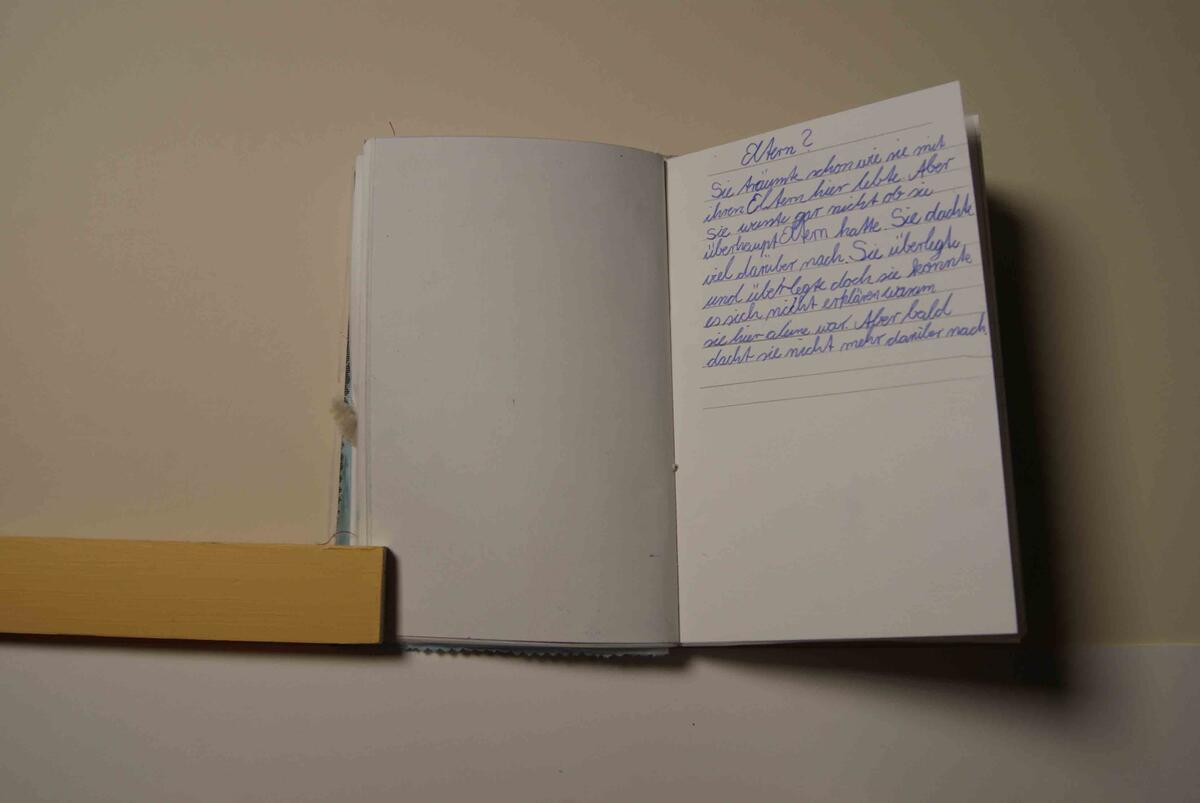 Eltern?
Sie träumte schon wie sie mit
ihren Eltern hier lebte. Aber
sie wuste gar nicht ob sie
überhaupt Eltern hatte. Sie dachte
viel darüber nach. Sie überlegte
und überlegte doch sie konnte
es sich nicht erklären warum
sie hier aleine war. Aber bald
dacht sie nicht mehr darüber nach.